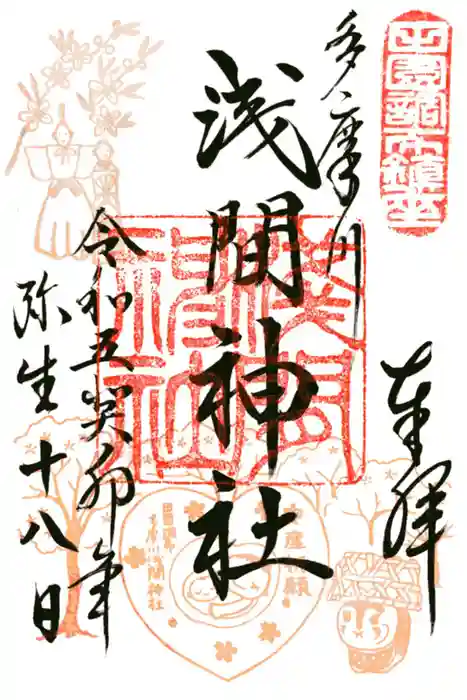 田園調布鎮座
奉拝
多摩川
浅間神社
浅間神社
令和五癸卯年
弥生十八日
安産祈願
田園調布
多摩川浅間神社